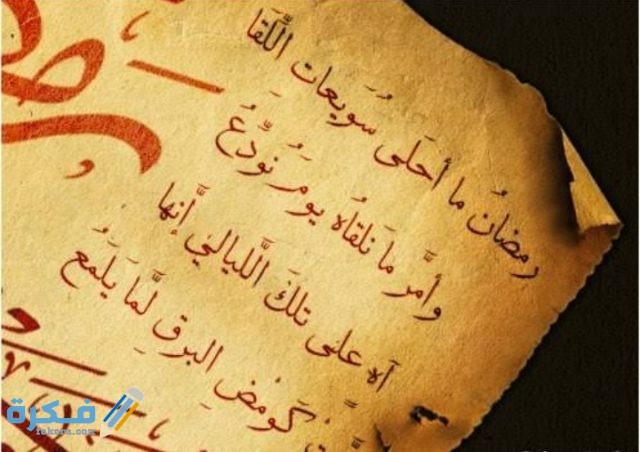 رمضانُ ما أحلَى سُوَيعات الَّلقا
وأمَّر مَا نلقاه يومَ نُودِّعُ
آه على تلكَ الَّلياليَ إَّنها
كَومْضِ البرق لَّمَا يَلَمعُ
فكرة
fekera.com